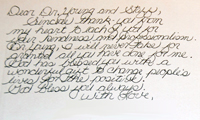 Dear Dr. Young and staff,
Sincere thank you from
my heart to each of you for
your kindness and professionalism.
Dr. Young, I will never take for
granted all you have done for me.
God has blessed you with a
wonderful gift to change people's
lives for the positive.
God bless you always.
With love,